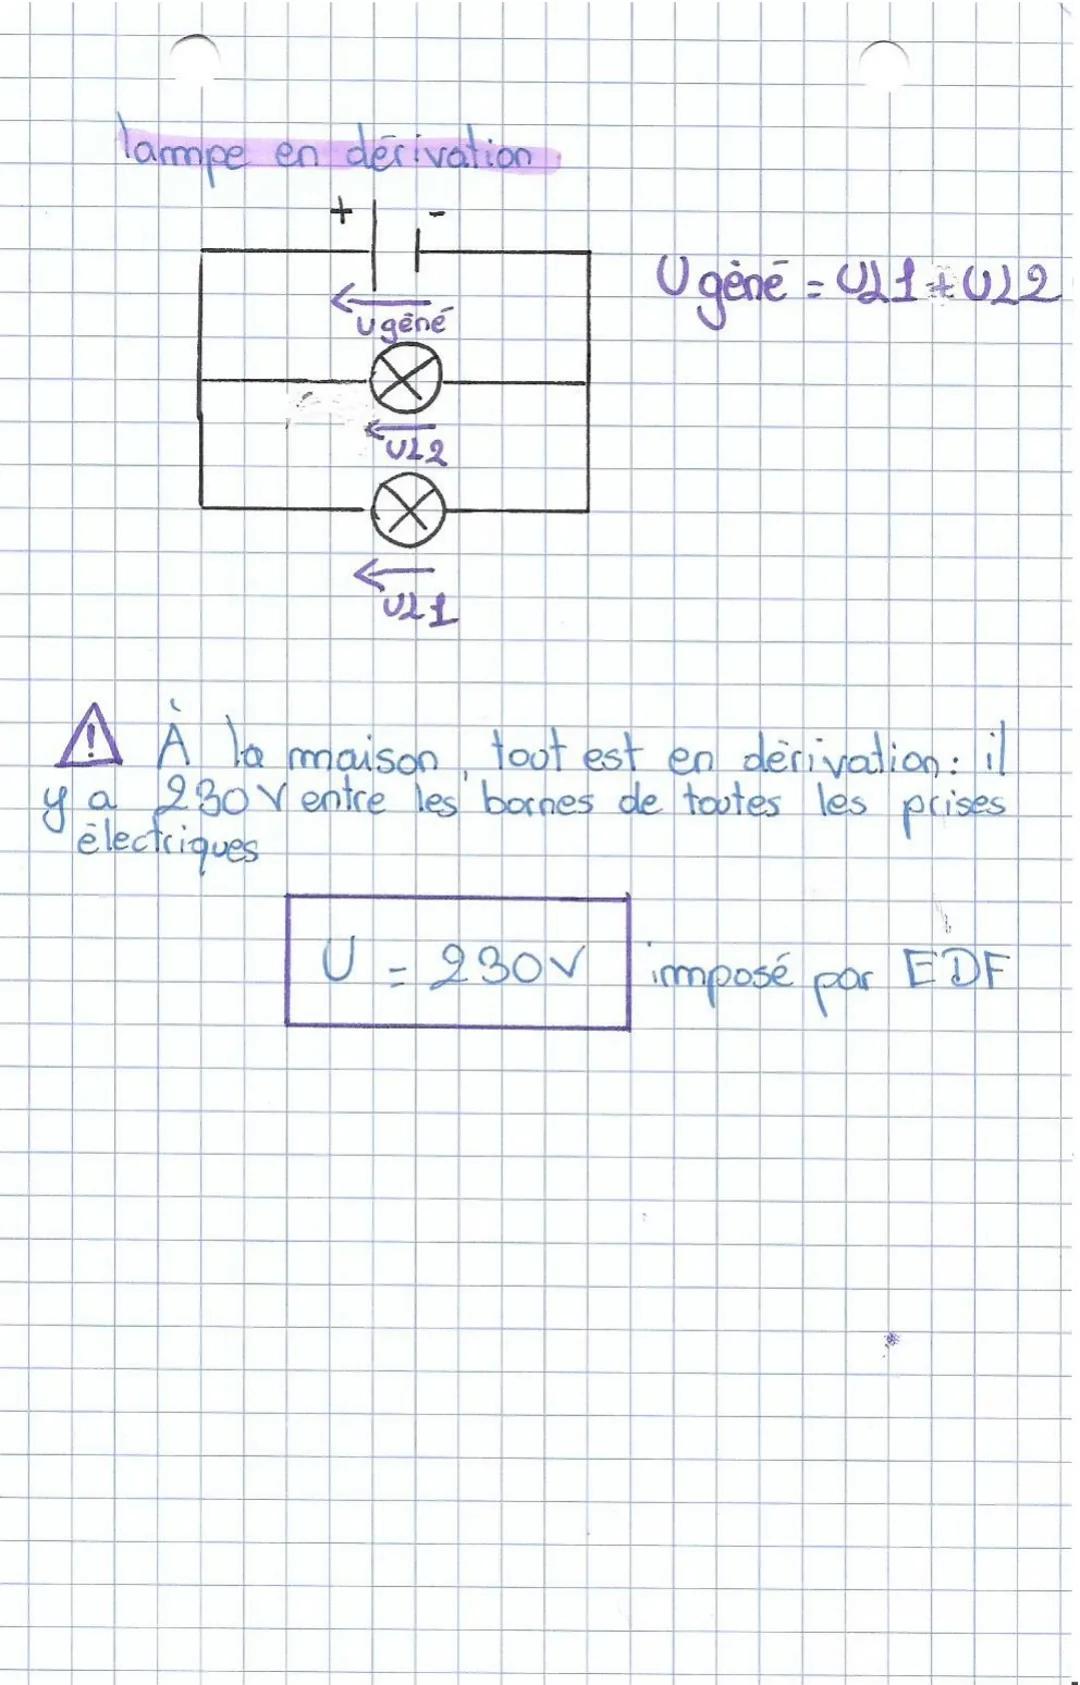 lampe en dérivation
+ -
U géné = UL1 + UL2
U géné
UL2
UL1
⚠ À la maison, tout est en dérivation : il
y a 230V entre les bornes de toutes les prises
électriques
U = 230V imposé par EDF